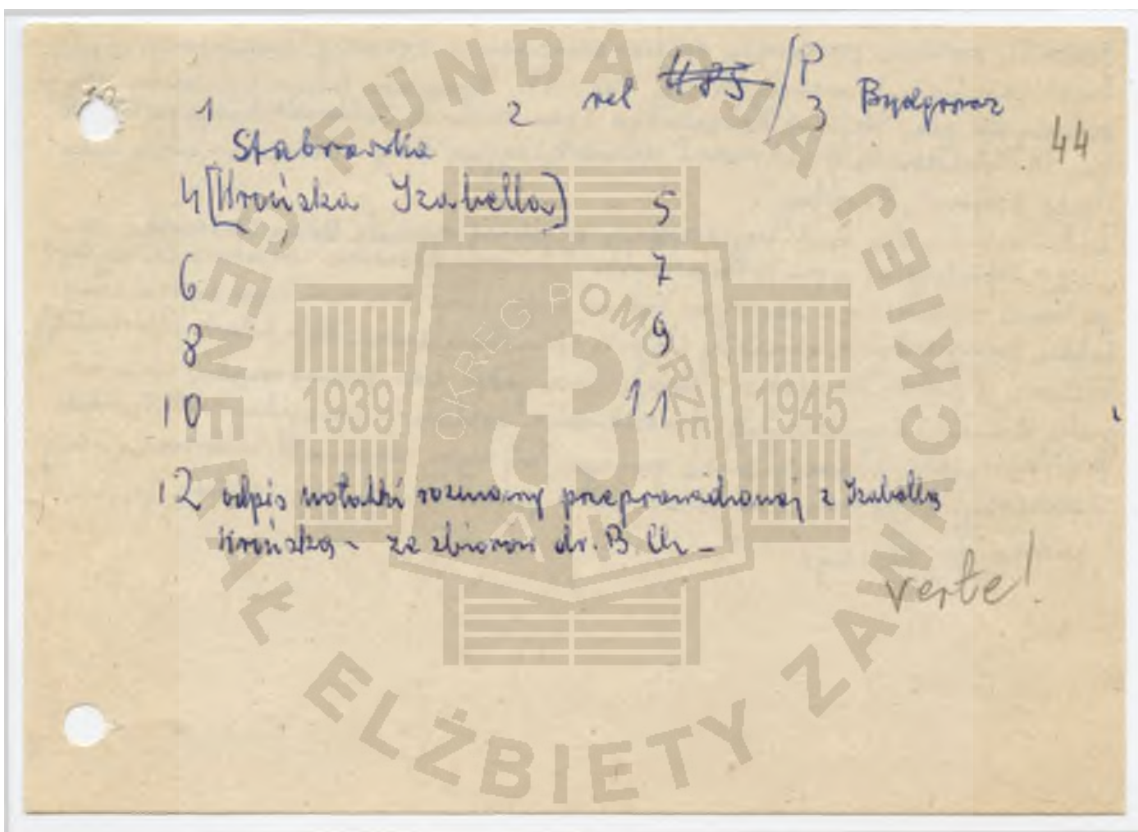 1 2 rel 485/P 3 Bydgoszcz 44
Stabrowska
4 [Krońska Izabella] 5
6 7
8 9
10 11
12 odpis notatki rozmowy przeprowadzonej z Izabellą
Krońską - ze zbiorów dr. B. Ch -
verte!
FUNDACJA GENERAŁ ELŻBIETY ZAWACKIEJ
OKRĘG POMORZE
1939 1945
AK